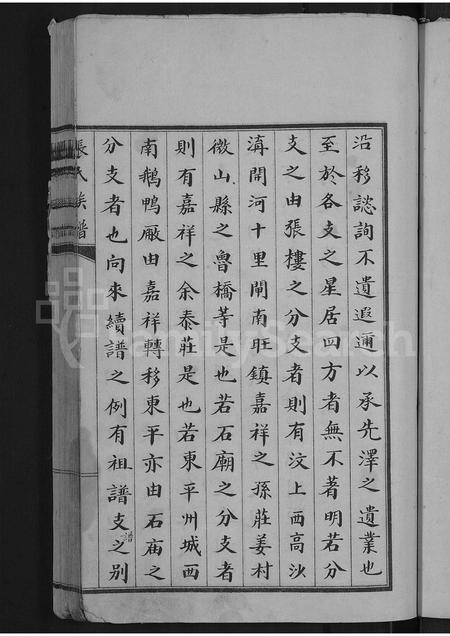 沿移諮詢不遺遐邇以承先澤之遺業也
至於各支之星居四方者無不著明若分
支之由張樓之分支者則有汶上西高沙
溝開河十里閘南旺鎮嘉祥之孫莊姜村
微山縣之魯橋等是也若石廟之分支者
則有嘉祥之余泰莊是也若東平州城西
南鵝鴨廠由嘉祥轉移東平亦由石庙之
分支者也向来續譜之例有祖譜支譜之别
張氏族譜
FamilySearch